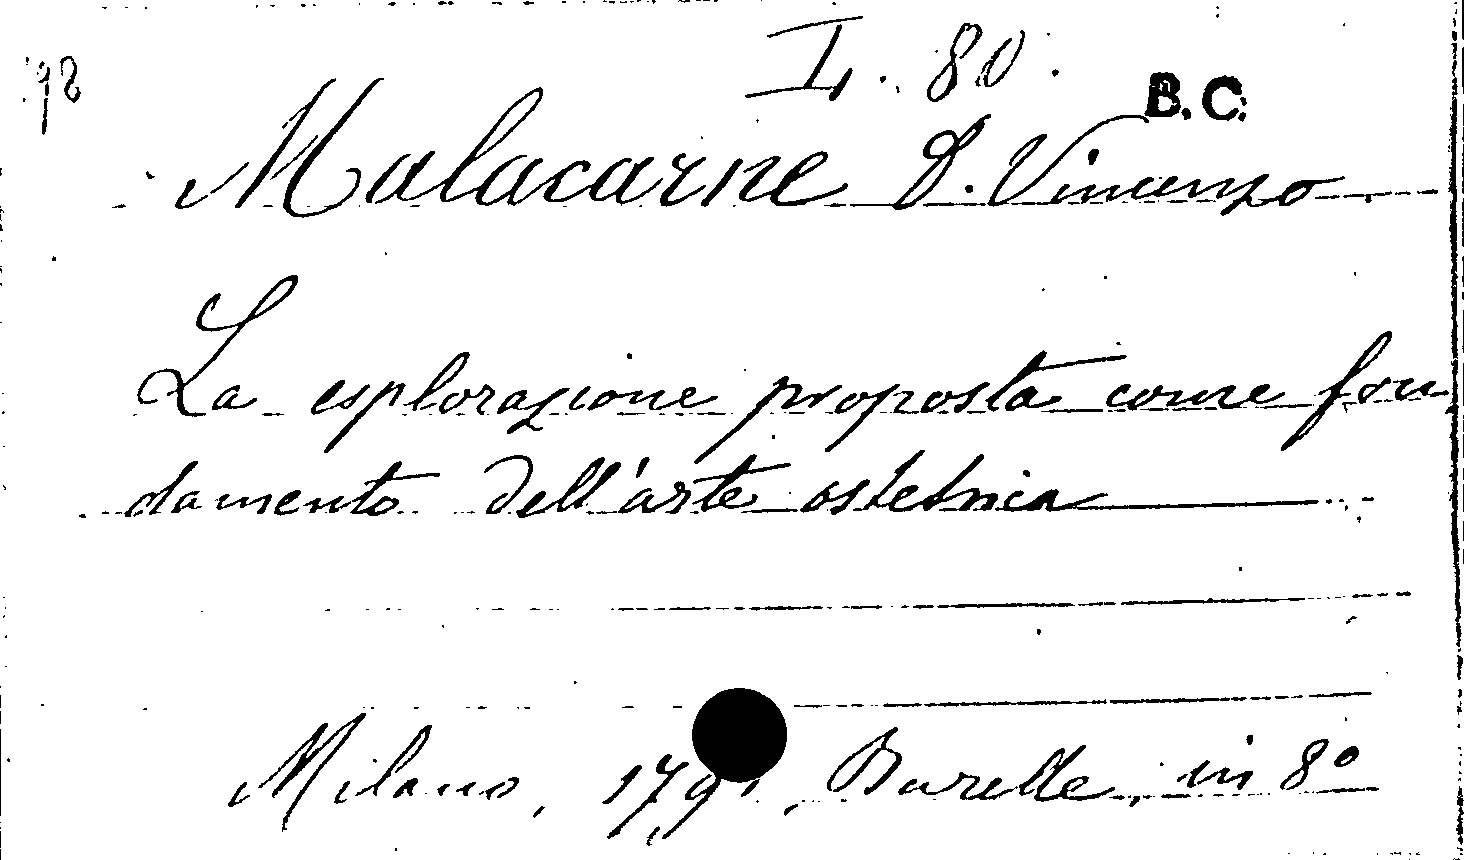 I. 80.
98
B.C.
Malacarne D. Vincenzo
La esplorazione proposta come fon-
damento dell'arte ostetricia
Milano, 1791, Barelle, in 8°